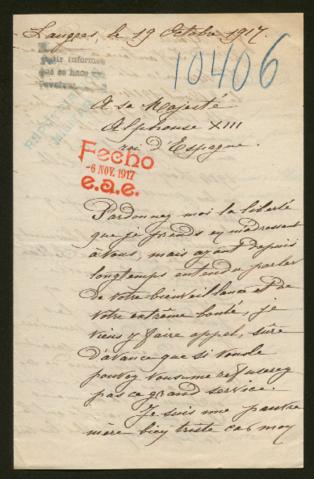 Langres, le 19 Octobre 1917.
Pedir informes
que se hace en
10406
A sa Majesté
Alphonse XIII
roi d'Espagne.
Fecho
-6 NOV. 1917
e.a.e.
Pardonnez moi la liberté
que je prends en m'adressant
à vous, mais ayant depuis
longtemps entendu parler
de votre bienveillance et de
votre extrême bonté, je
viens y faire appel, sûre
d'avance que si vous le
pouvez vous ne me refuserez
pas ce grand service.
Je suis une pauvre
mère bien triste car mon